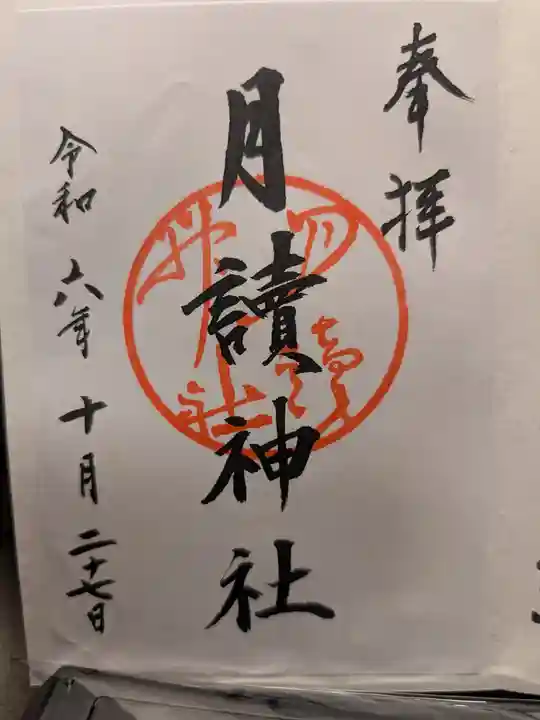 奉拝
月讀神社
令和六年十月二十七日